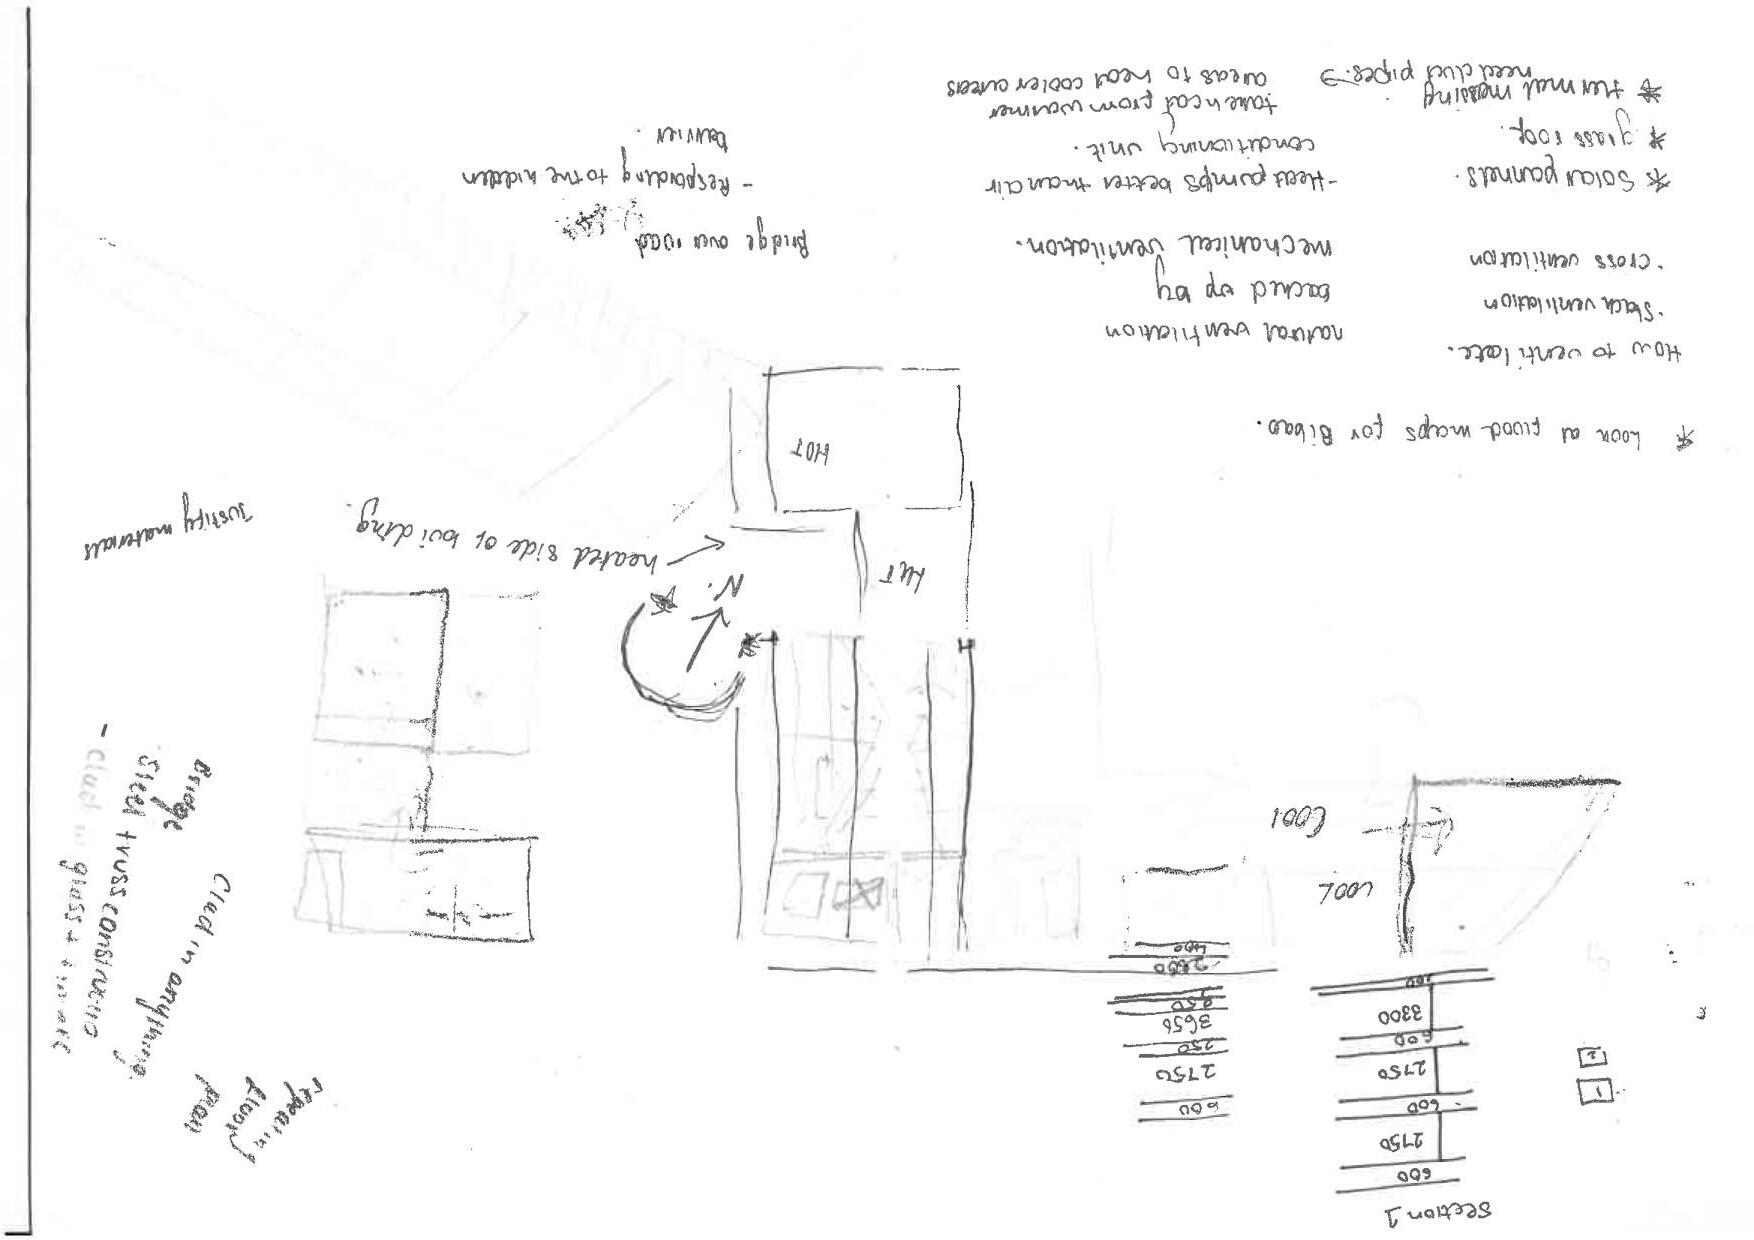 Section 1
600
2750
600
2750
600
3300
1
2
600
2750
250
3656
250
2800
400
COOL
COOL
repeating
floor
plan
Clad in anything.
Bridge
Steel truss construction
- Clad in glass +
HOT
HOT
N.
heated side of building.
Justify materials
* Look at flood maps for Bibao.
How to ventilate.
· Stack ventilation
· cross ventilation
natural ventilation
backed up by
mechanical ventilation.
* Solar pannels.
* glass roof.
* thermal massing
need duct pipes.
- Heat pumps better than air
conditioning unit.
take heat from warmer
areas to heat cooler areas
Bridge over road
- Responding to the hidden
barrier.